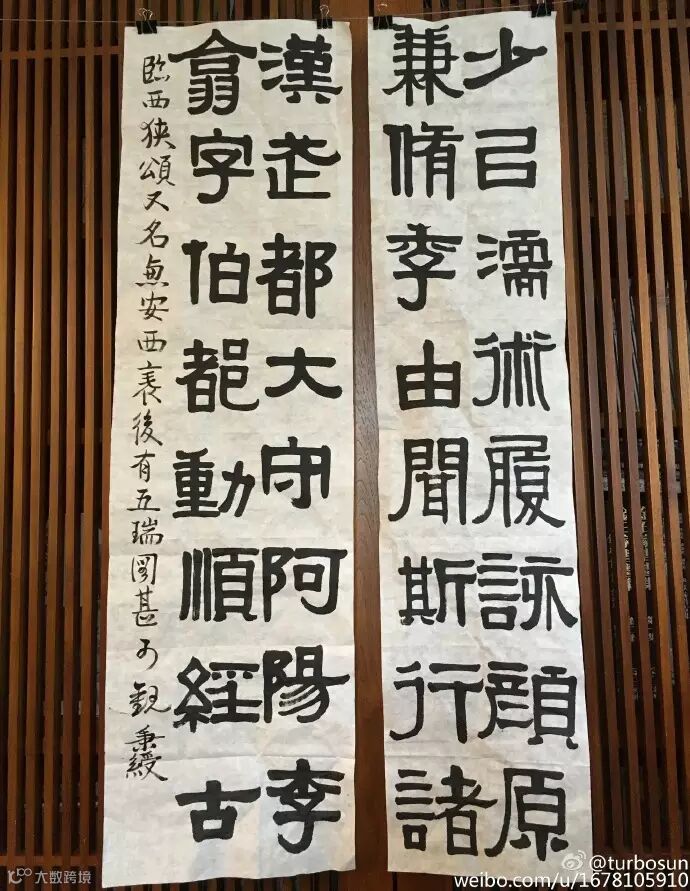 少㠯濡術履詠顏原
兼脩季由聞斯行諸
漢武都大守阿陽李
翕字伯都動順經古
臨西狹頌又名惠安西表後有五瑞圖甚可觀 秉綬
大数跨境
@turbosun
weibo.com/u/1678105910